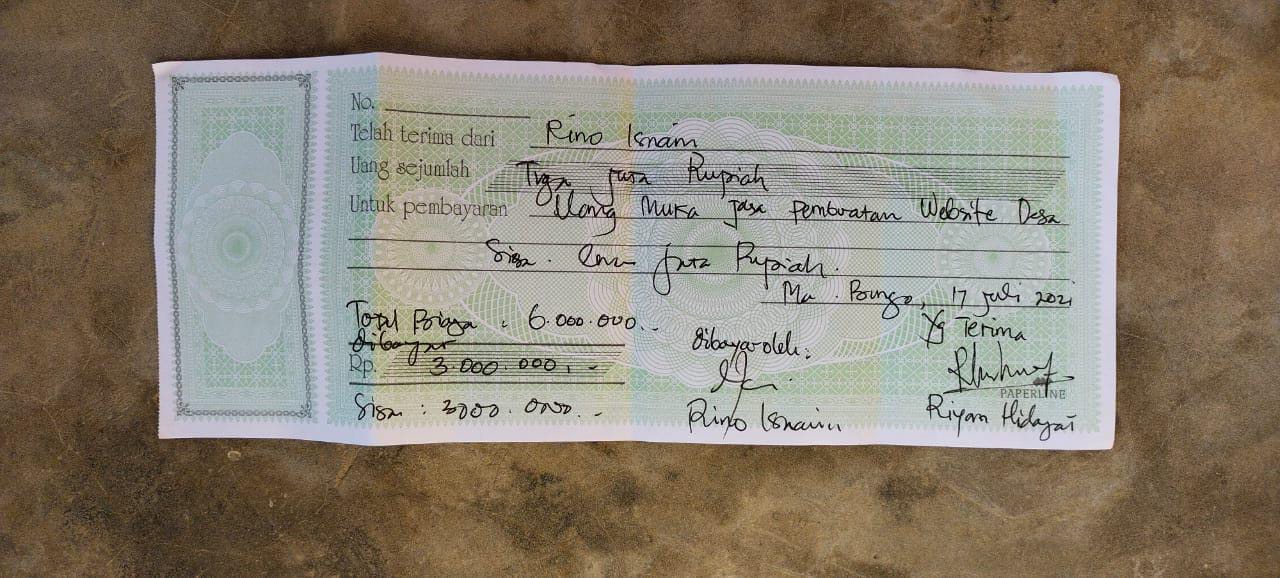 No.
Telah terima dari Rino Isnain
Uang sejumlah Tiga juta Rupiah
Untuk pembayaran Uang Muka jasa pembuatan Website Desa
Sisa. juta Rupiah.
Ma. Bungo, 17 juli 2021
Total Biaya : 6.000.000.-
dibayar
Rp. 3.000.000,-
Sisa : 3000.000.-
dibayar oleh:
Rino Isnain
Yg Terima
PAPERLINE
Riyan Hidayat